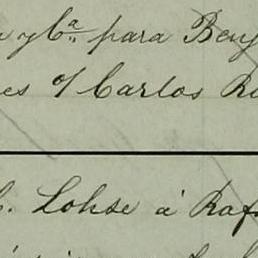 y Cª para Benj
es o/ Carlos R
C. Lohse á Raf